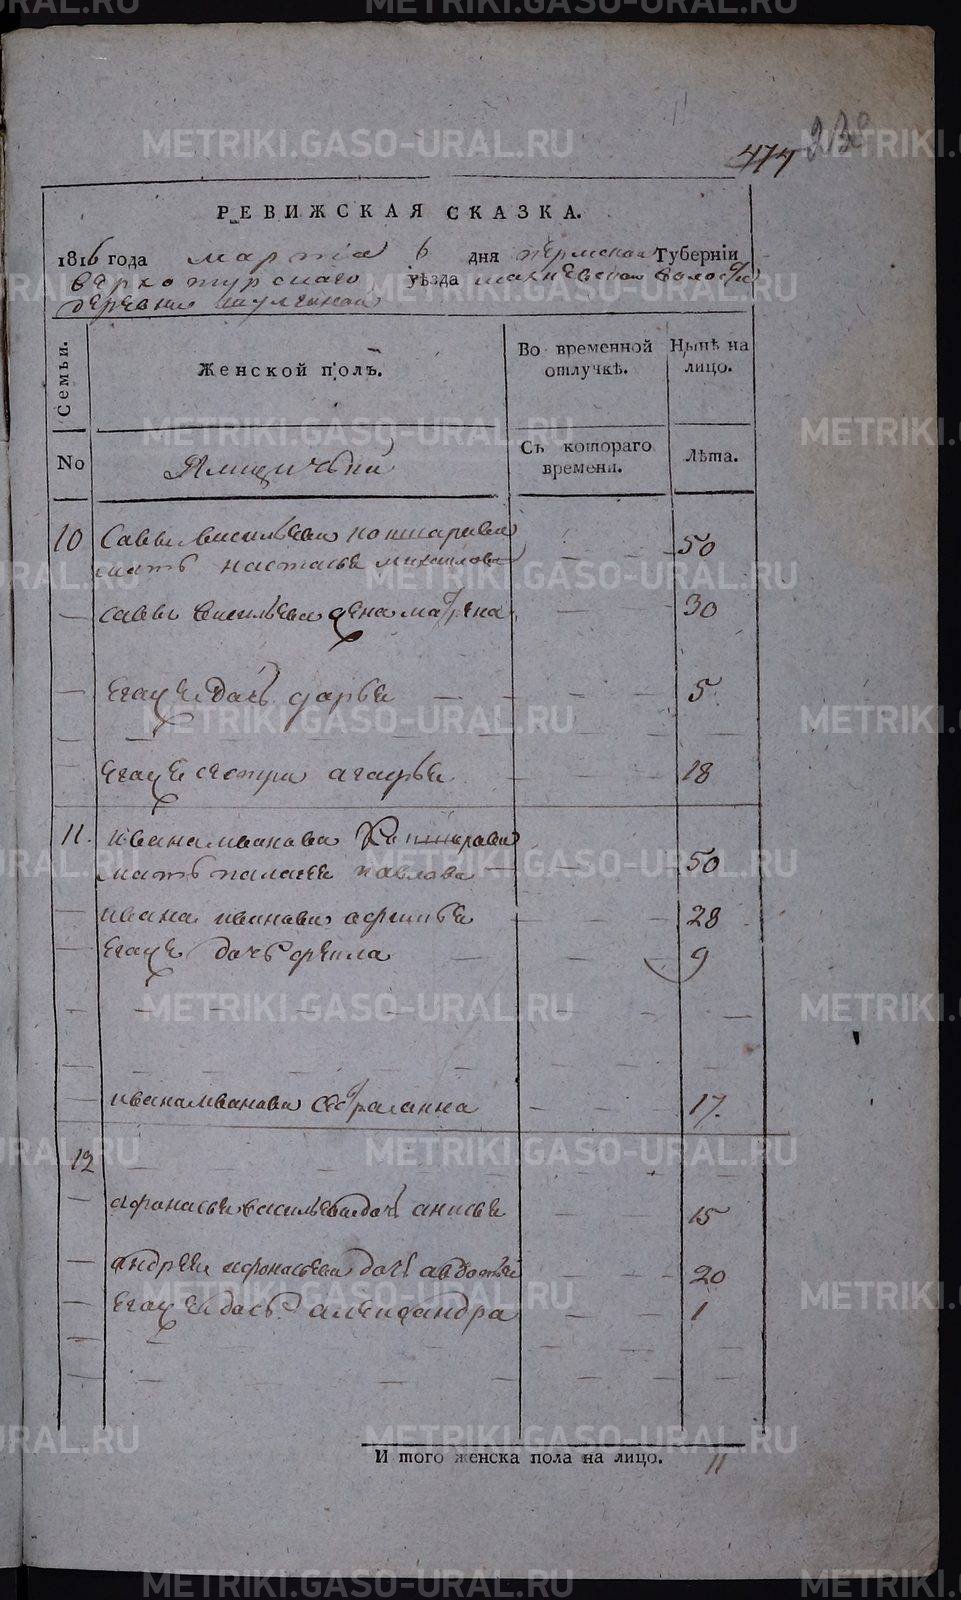 METRIKI.GASO-URAL.RU
230
474
РЕВИЖСКАЯ СКАЗКА.
1816 года мартіа 6 дня пермской Губерніи
верхотурскаго уѣзда махневской волости
деревни
Семьи.
Женской полъ.
Во временной отлучкѣ.
Нынѣ на лицо.
No
Ямщичьи
Съ котораго времени.
Лѣта.
10 саввы васильева кокшарова
мать настасья михаилова — — 50
— саввы васильева жена матрена — — 30
— егоже дочь дарья — — — — 5
егоже сестра агафья — — — 18
11. ивана иванова Кокшарова
мать палагея павлова — — 50
— ивана иванова афимья — — — 28
— егоже дочь фекла — — — 9
— ивана иванова сестра анна — — — 17.
12
— афонасья васильева дочь анисья — — — 15
— андрея афонасьева дочь авдотья — — 20
— егоже дочь александра — — 1
И того женска пола на лицо. 11